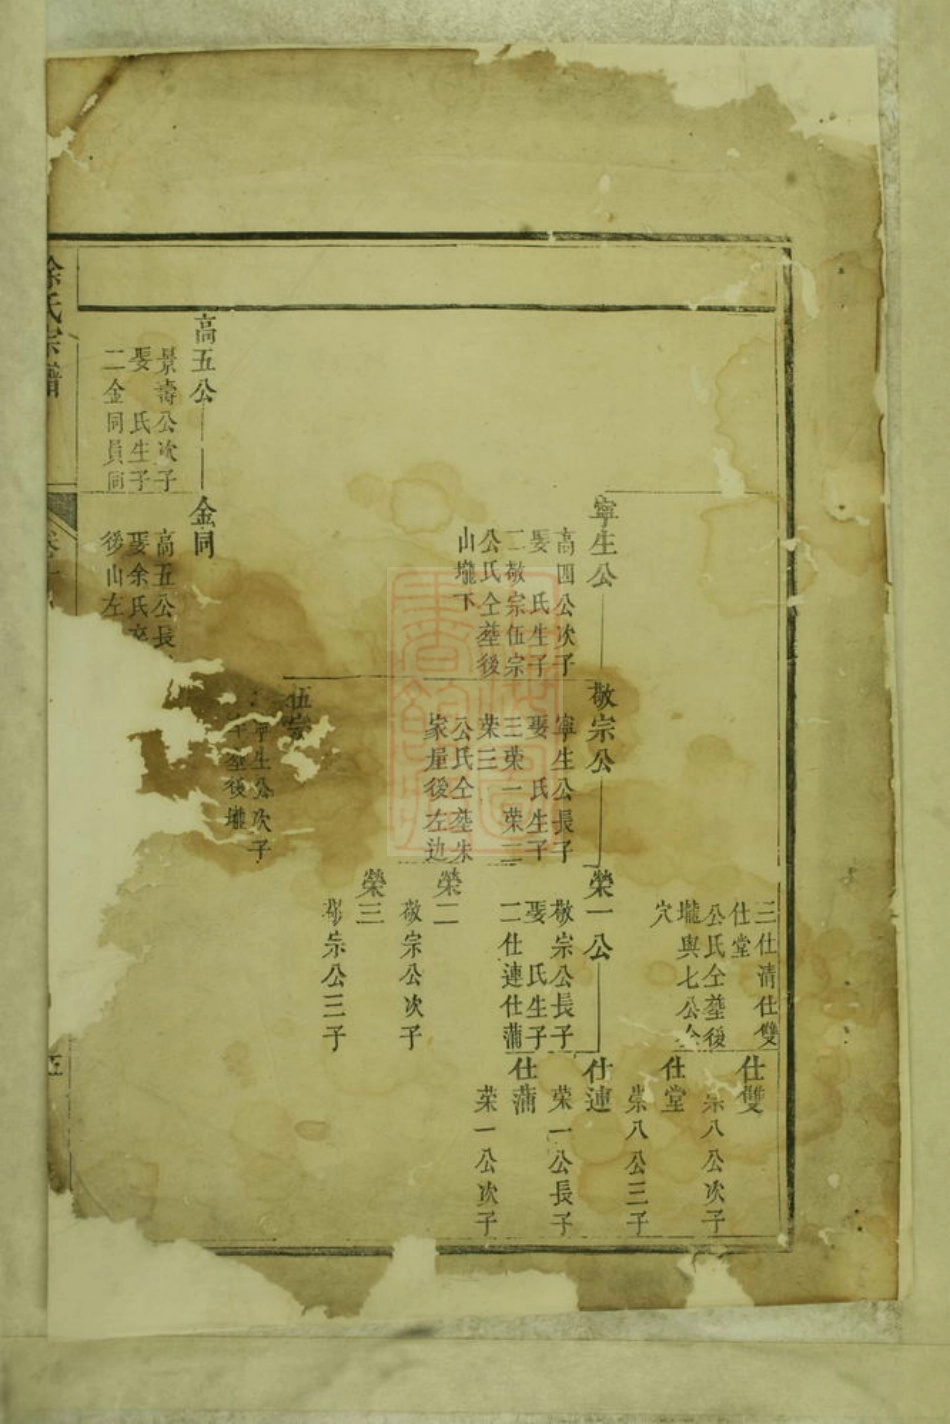 三仕清仕雙
仕堂
公氏仝塟後
壠與七公仝
穴
仕雙
榮八公次子
仕堂
榮八公三子
寧生公
高四公次子
娶 氏生子
二敬宗伍宗
公氏仝塟後
山壠下
敬宗公
寧生公長子
娶 氏生子
三荣一荣二
荣三
公氏仝塟朱
家屋後左边
榮一公
敬宗公長子
娶 氏生子
二仕連仕蒲
仕連
荣一公長子
仕蒲
荣一公次子
榮二
敬宗公次子
榮三
敬宗公三子
伍宗
寧生公次子
塟後壠
高五公
景壽公次子
娶 氏生子
二金同員同
金同
高五公長
娶余氏卒
後山左
徐氏宗譜
五